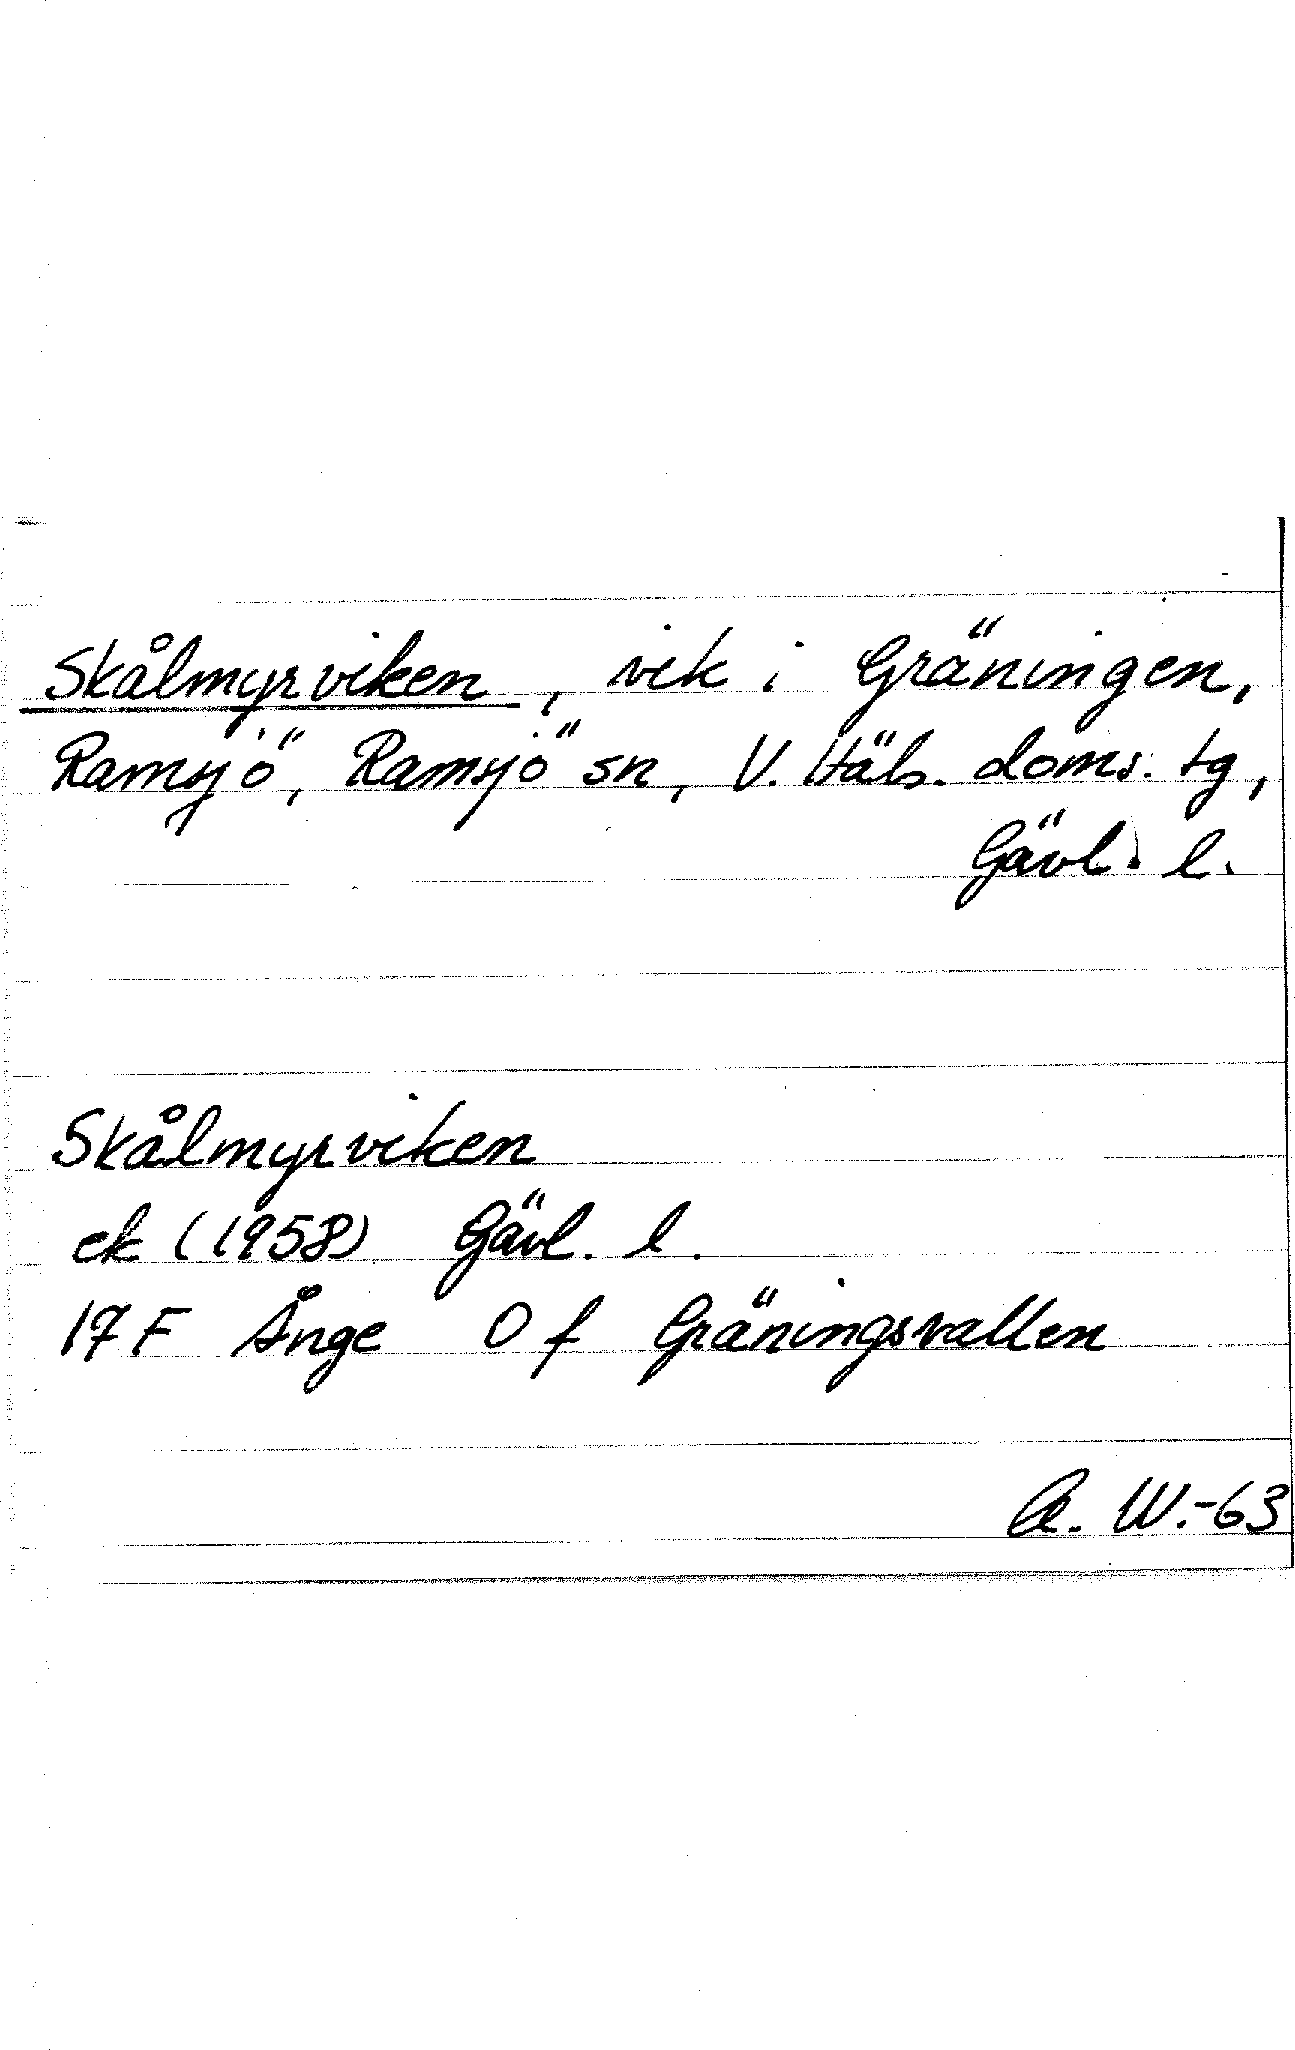 Skålmyrviken, vik i Gräningen,
Ramsjö, Ramsjö sn, V. Häls. doms. tg,
Gävl. l.
Skålmyrviken
ek (1958) Gävl. l.
17 F Ånge O f Gräningsvallen
A. W.-63